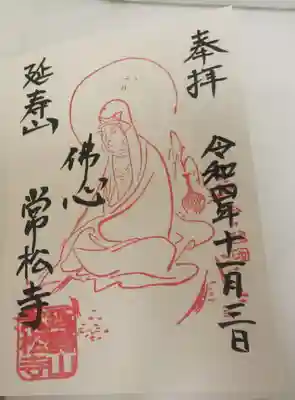 奉拝
令和四年十一月三日
佛心
延寿山
常松寺